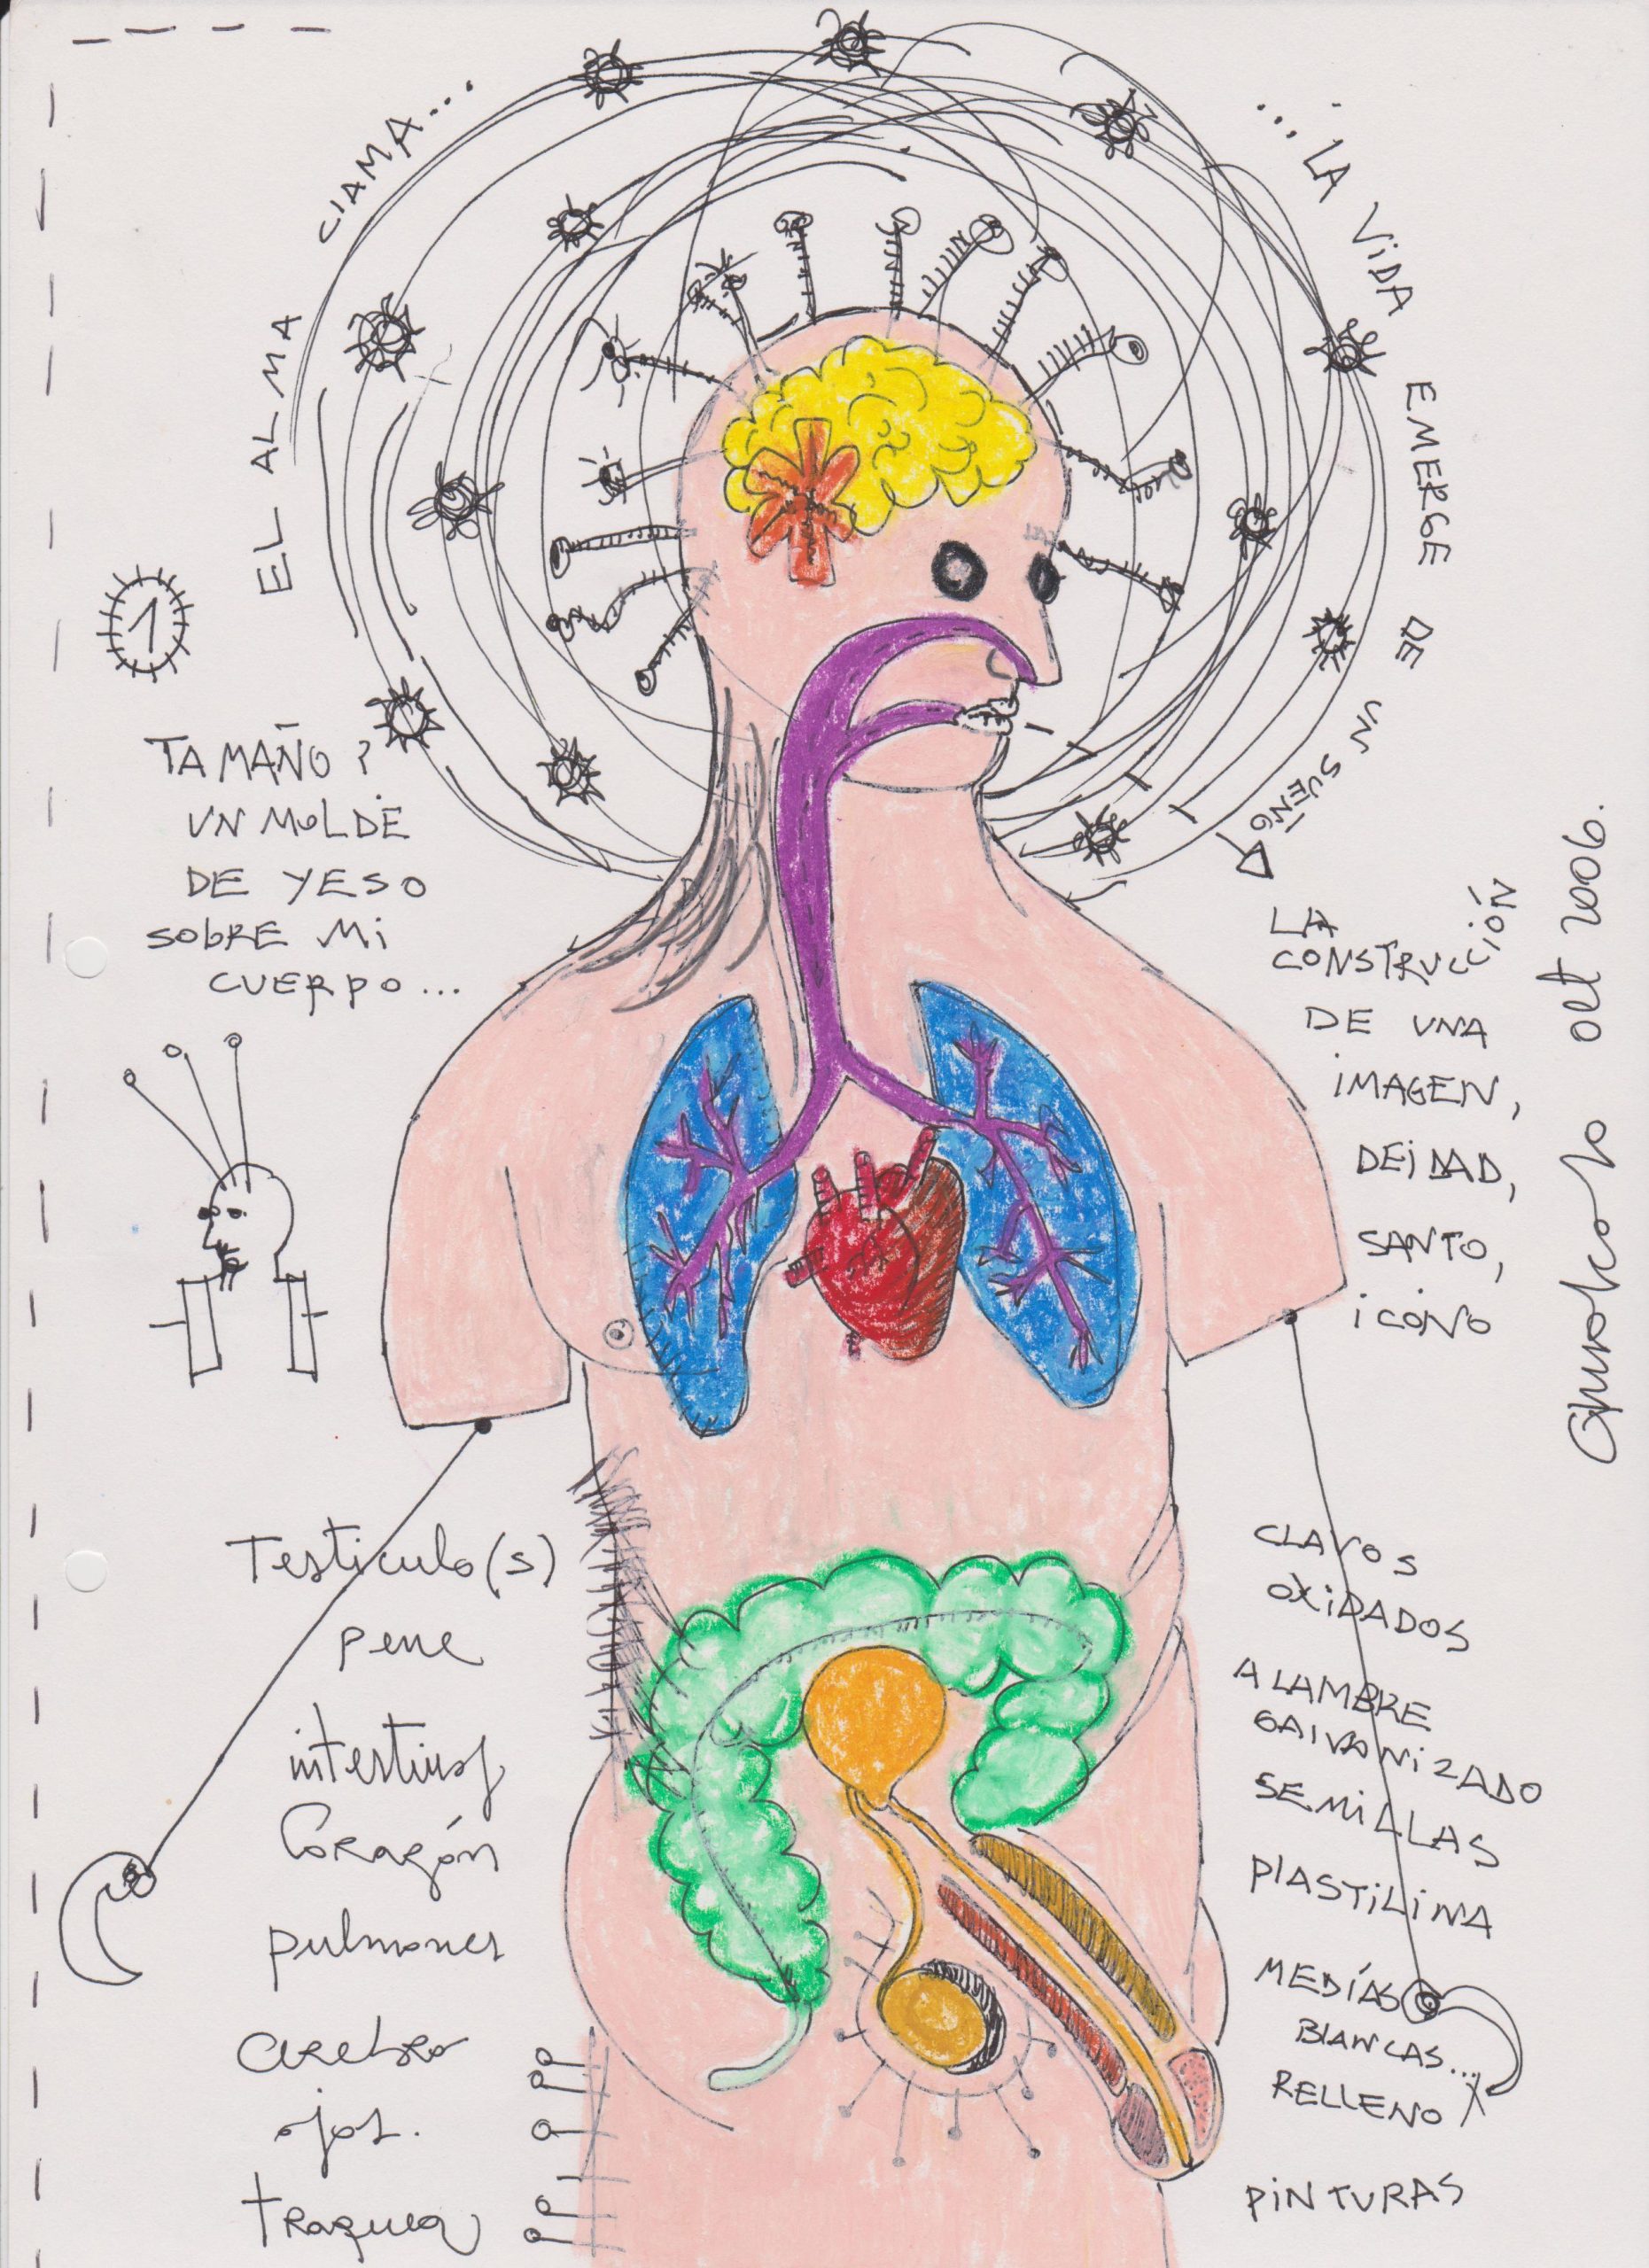 EL ALMA CLAMA...
...LA VIDA EMERGE DE UN SUEÑO
1
TAMAÑO?
UN MOLDE
DE YESO
SOBRE Mi
CUERPO...
LA
CONSTRUCCIÓN
DE UNA
iMAGEN,
DEiDAD,
SANTO,
iCONO
oct 2006.
Testiculo(s)
pene
intestinos
Corazón
pulmones
cerebro
ojos.
TRAquea
CLAVOS
OXiDADOS
ALAMBRE
GALVANiZADO
SEMiLLAS
PLASTiLiNA
MEDÍAS
BLANCAS...
RELLENO
PiNTURAS